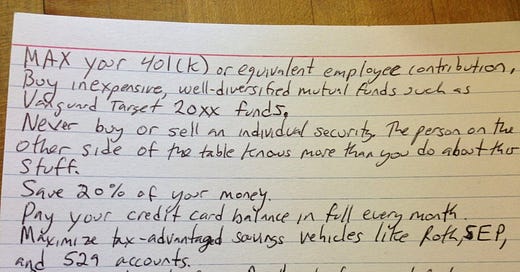 MAX your 401(k) or equivalent employee contribution.
Buy inexpensive, well-diversified mutual funds such as
Vanguard Target 20xx funds.
Never buy or sell an individual security. The person on the
other side of the table knows more than you do about this
stuff.
Save 20% of your money.
Pay your credit card balance in full every month.
Maximize tax-advantaged savings vehicles like Roth, SEP,
and 529 accounts.